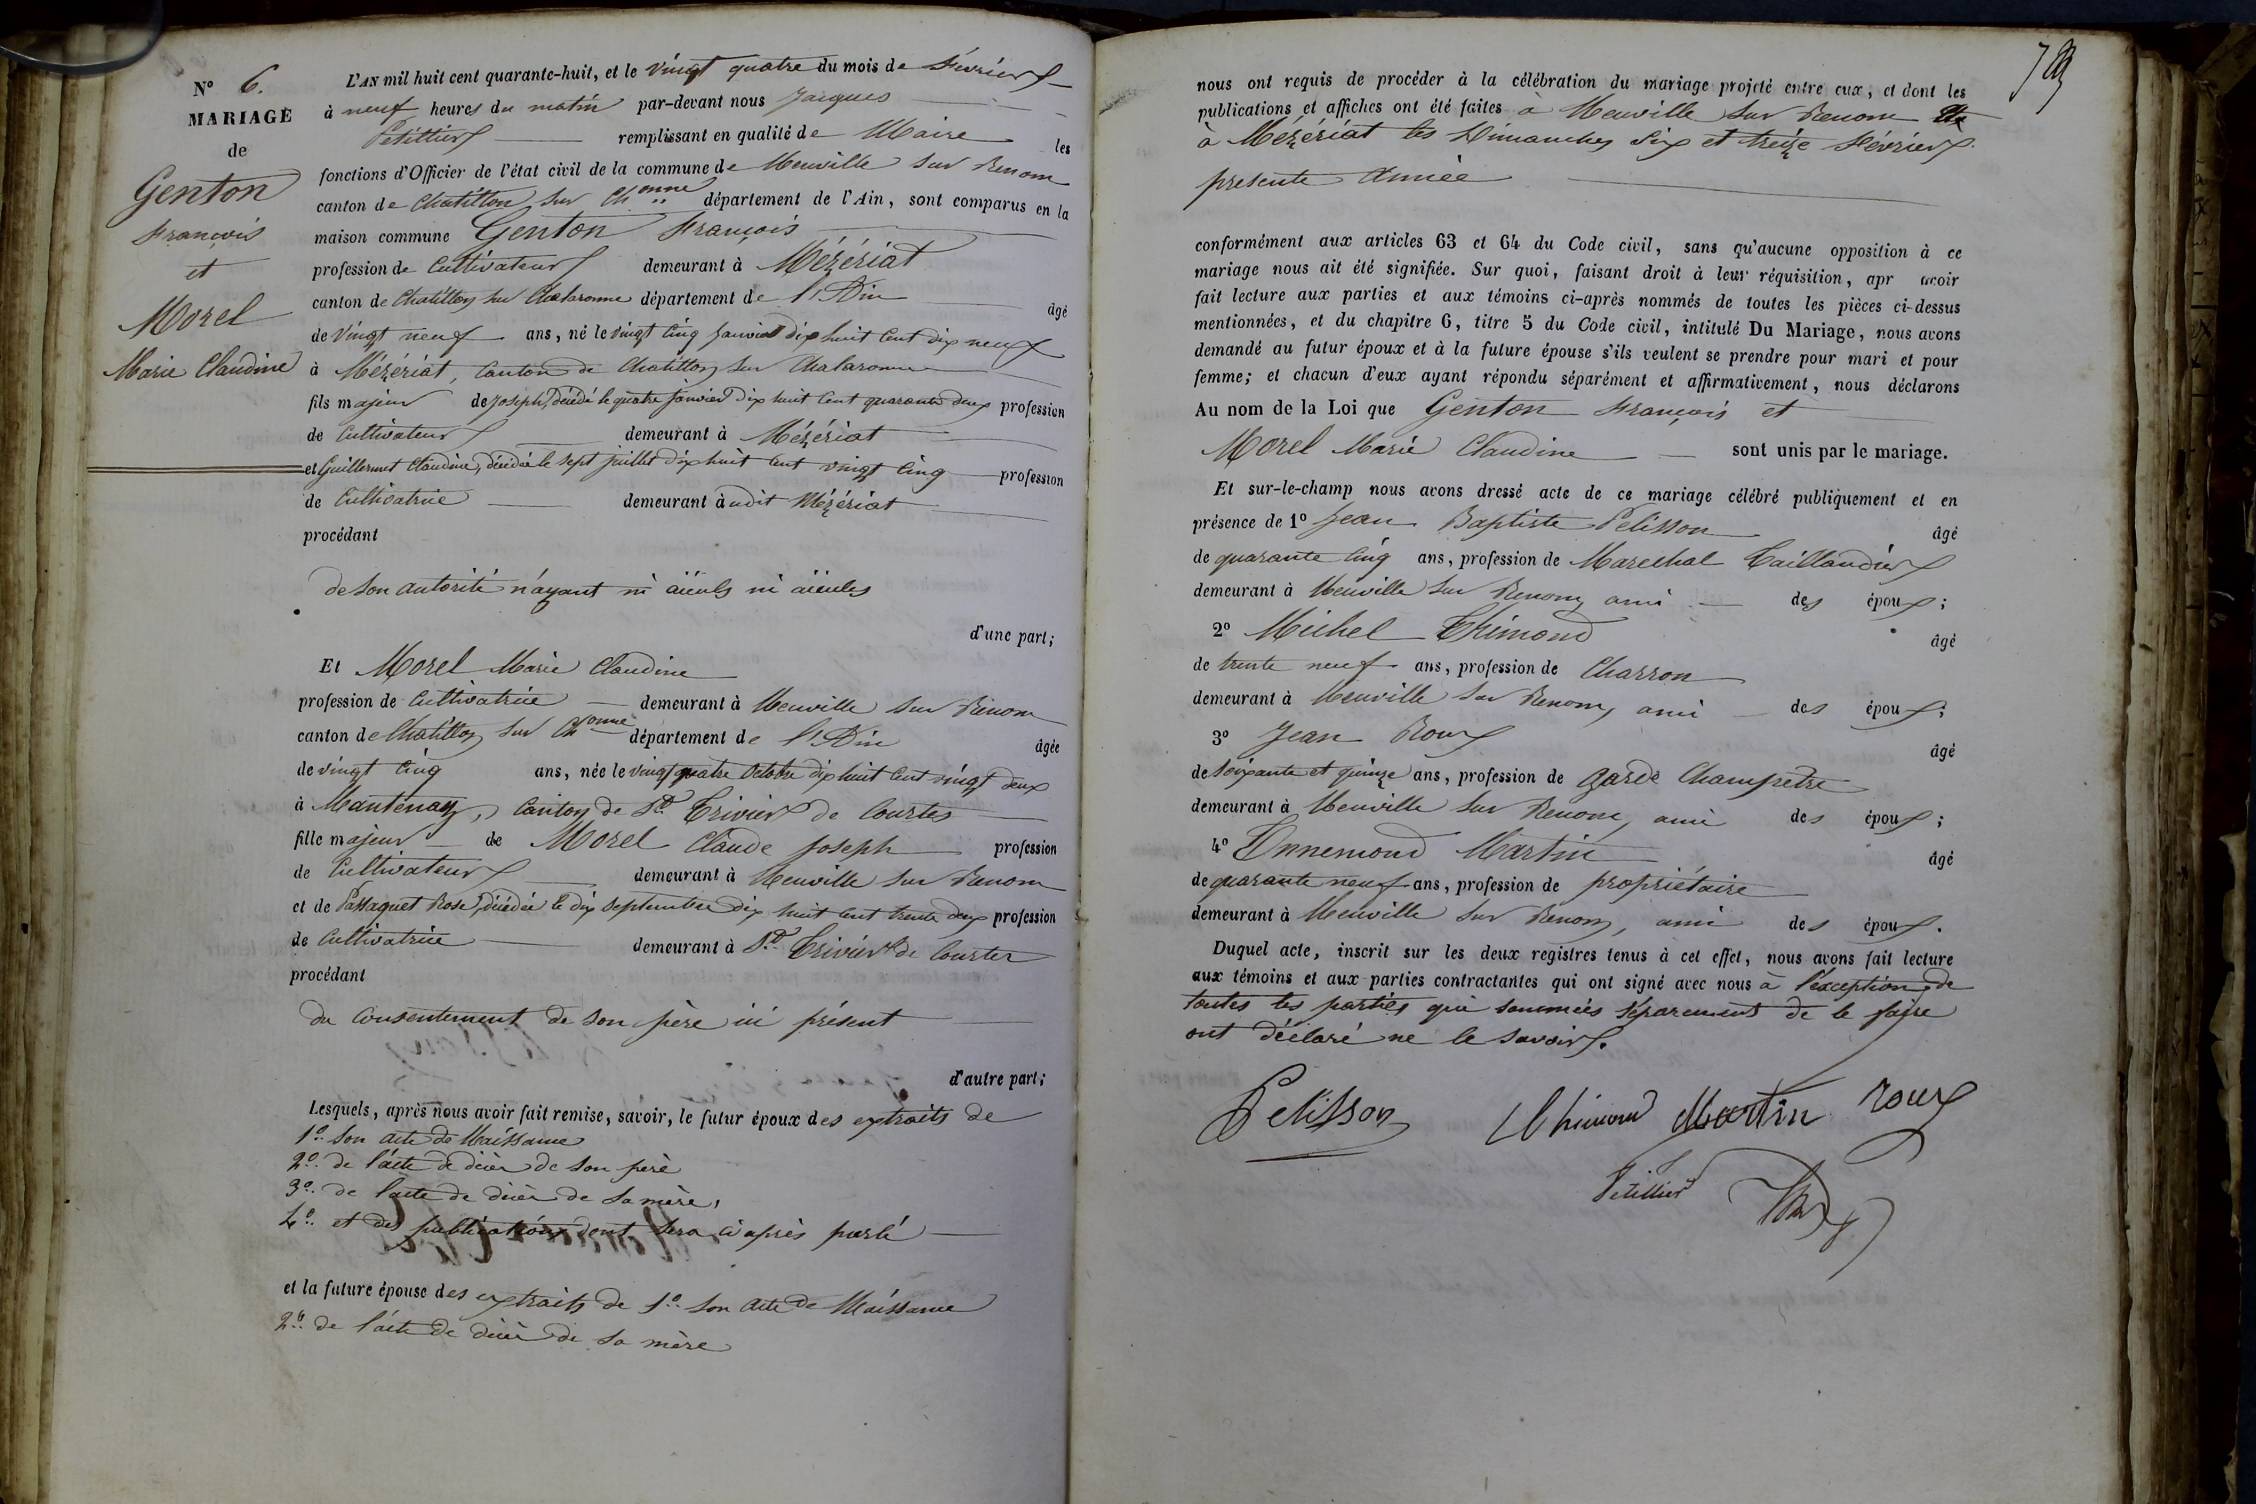 N° 6.
MARIAGE
de
Genton
François
et
Morel
Marie Claudine
L'AN mil huit cent quarante-huit, et le vingt quatre du mois de Février
à neuf heures du matin par-devant nous Jacques
Petillier remplissant en qualité de Maire les
fonctions d'Officier de l'état civil de la commune de Neuville sur Renom
canton de Chatillon sur Ch onne département de l'Ain, sont comparus en la
maison commune Genton François
profession de Cultivateur demeurant à Mézériat
canton de Chatillon sur Chalaronne département de l'Ain âgé
de vingt neuf ans, né le vingt cinq Janvier dix huit cent dix neuf
à Mézériat, Canton de Chatillon sur Chalaronne
fils majeur de Joseph, décédé le quatre janvier dix huit cent quarante deux profession
de Cultivateur demeurant à Mézériat
et Guillermet Claudine, décédée le sept juillet dix huit cent vingt cinq profession
de Cultivatrice demeurant à udit Mézériat
procédant
de son autorité n'ayant ni aïeuls ni aïeules
d'une part;
Et Morel Marie Claudine
profession de Cultivatrice demeurant à Neuville sur Renom
canton de Chatillon sur Ch onne département de l'Ain âgée
de vingt cinq ans, née le vingt quatre Octobre dix huit cent vingt deux
à Mantenay, Canton de St. Trivier de Courtes
fille majeur de Morel Claude Joseph profession
de Cultivateur demeurant à Neuville sur Renom
et de Passaquet Rose, décédée le dix septembre dix huit cent trente deux profession
de Cultivatrice demeurant à St. Trivier de Courtes
procédant
du consentement de son père ici présent
d'autre part;
Lesquels, après nous avoir fait remise, savoir, le futur époux des extraits de
1° son acte de Naissance
2° de l'acte de décès de son père
3° de l'acte de décès de sa mère,
4° et des publications dont sera ci après parlé
et la future épouse des extraits de 1° son acte de Naissance
2° de l'acte de décès de sa mère
nous ont requis de procéder à la célébration du mariage projeté entre eux, et dont les
publications et affiches ont été faites à Neuville sur Renom
à Mézériat les Dimanches six et treize Février
presente Année
conformément aux articles 63 et 64 du Code civil, sans qu'aucune opposition à ce
mariage nous ait été signifiée. Sur quoi, faisant droit à leur réquisition, apr avoir
fait lecture aux parties et aux témoins ci-après nommés de toutes les pièces ci-dessus
mentionnées, et du chapitre 6, titre 5 du Code civil, intitulé Du Mariage, nous avons
demandé au futur époux et à la future épouse s'ils veulent se prendre pour mari et pour
femme; et chacun d'eux ayant répondu séparément et affirmativement, nous déclarons
Au nom de la Loi que Genton François et
Morel Marie Claudine sont unis par le mariage.
Et sur-le-champ nous avons dressé acte de ce mariage célébré publiquement et en
présence de 1° Jean Baptiste Pelisson âgé
de quarante cinq ans, profession de Marechal Taillandier
demeurant à Neuville sur Renom, ami des époux;
2° Michel Thimond âgé
de trente neuf ans, profession de Charron
demeurant à Neuville sur Renom, ami des époux;
3° Jean Roux âgé
de soixante et quinze ans, profession de garde Champetre
demeurant à Neuville sur Renom, ami des époux;
4° Ennemond Martin âgé
de quarante neuf ans, profession de propriétaire
demeurant à Neuville sur Renom, ami des époux.
Duquel acte, inscrit sur les deux registres tenus à cet effet, nous avons fait lecture
aux témoins et aux parties contractantes qui ont signé avec nous à l'éxception de
toutes les parties qui sommées séparement de le faire
ont déclaré ne le savoir.
Pelisson Thimond Martin Roux
Petillier